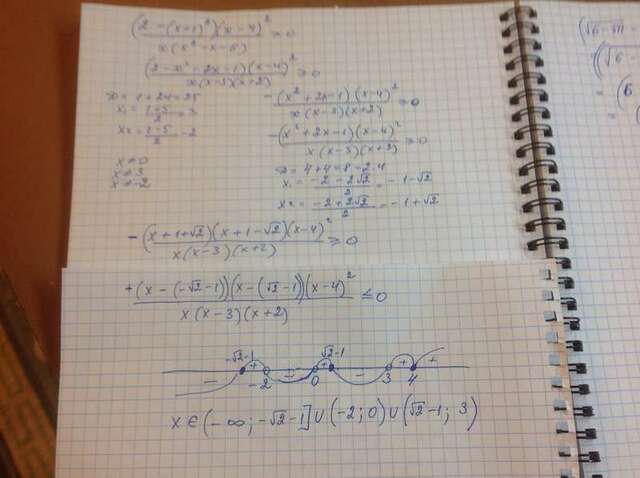 (2 − (x+1)²)(x−4)² / x(x²−x−6) ≥ 0
(2−x²−2x−1)(x−4)² / x(x−3)(x+2) ≥ 0
D = 1+24=25
x₁ = 1+5 / 2 = 3
x₂ = 1−5 / 2 = −2
x ≠ 0
x ≠ 3
x ≠ −2
− (x²+2x−1)(x−4)² / x(x−3)(x+2) ≥ 0
− (x²+2x−1)(x−4)² / x(x−3)(x+2) ≥ 0
D = 4+4=8=2·4
x₁ = −2−2√2 / 2 = −1−√2
x₂ = −2+2√2 / 2 = −1+√2
− (x+1+√2)(x+1−√2)(x−4)² / x(x−3)(x+2) ≥ 0
+ (x−(−√2−1))(x−(√2−1))(x−4)² / x(x−3)(x+2) ≤ 0
−√2−1 √2−1
− + − + − + +
−2 0 3 4
x ∈ (−∞; −√2−1] ∪ (−2; 0) ∪ (√2−1; 3)